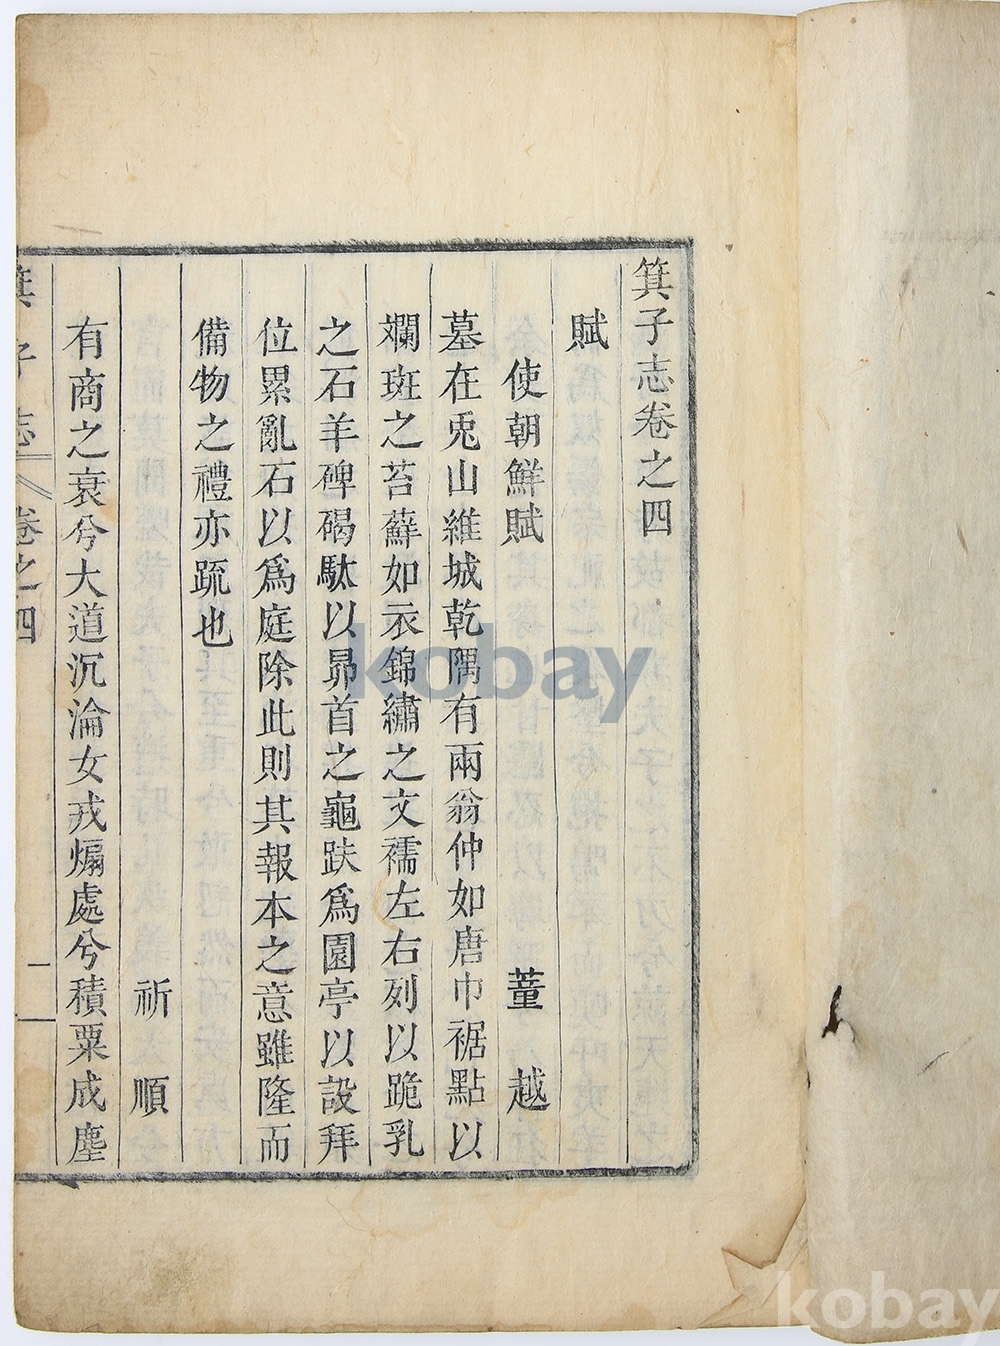 箕子志卷之四
賦
使朝鮮賦 董越
墓在兎山維城乾隅有兩翁仲如唐巾裾點以
斕斑之苔蘚如衣錦繡之文襦左右列以跪乳
之石羊碑碣馱以昴首之龜趺爲園亭以設拜
位累亂石以爲庭除此則其報本之意雖隆而
備物之禮亦疏也
祈順
有商之衰兮大道沉淪女戎煽處兮積粟成塵
箕子志 卷之四 一
kobay
kobay